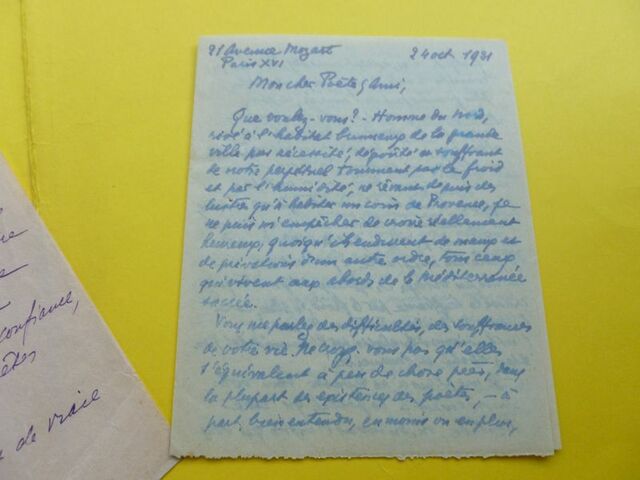 91 Avenue Mozart
Paris XVI
24 oct 1931
Mon cher Poète & Ami,
Que voulez-vous? - Homme du Nord,
rivé à l'habitat de la grande
ville par nécessité, dégoûté et souffrant
de notre perpétuel tourment par le froid
et par l'humidité, ne rêvant depuis des
lustres qu'à habiter un coin de Provence, je
ne puis m'empêcher de croire réellement
heureux, quoiqu'ils endurent de maux et
de privations d'un autre ordre, tous ceux
qui vivent aux abords de la Méditerranée
sacrée.
Vous me parlez des difficultés, des souffrances
de votre vie. Ne croyez-vous pas qu'elles
s'équivalent à peu de chose près, dans
la plupart des existences des poètes, - à
part, bien entendu, en moins ou en plus,
confiance,
de vraie